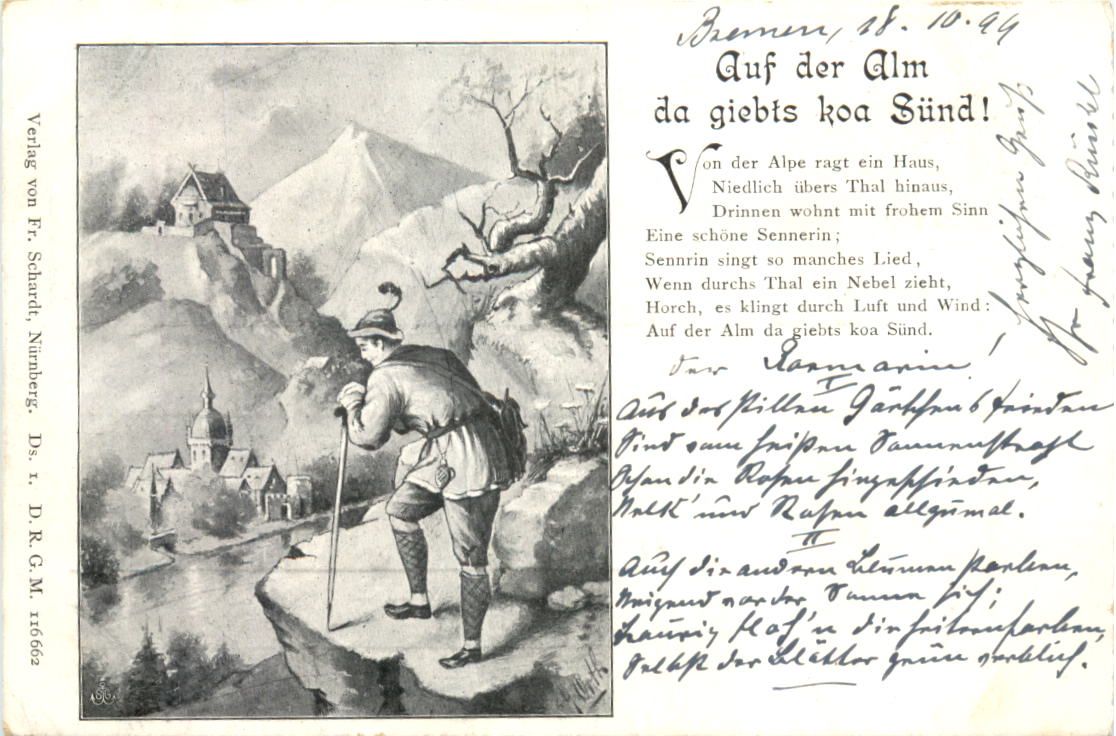 Bremen, 18. 10. 99
Auf der Alm
da giebts koa Sünd!
Von der Alpe ragt ein Haus,
Niedlich übers Thal hinaus,
Drinnen wohnt mit frohem Sinn
Eine schöne Sennerin;
Sennrin singt so manches Lied,
Wenn durchs Thal ein Nebel zieht,
Horch, es klingt durch Luft und Wind:
Auf der Alm da giebts koa Sünd.
Herzlichen Gruß
Franz
der Rosmarin!
I
Aus des stillen Gärtchens Frieden
Sind vom heißen Sonnenstrahl
Schon die Rosen hingeschieden,
Nelk' und Rosen allzumal.
II
Auch die andern Blumen starben,
Neigend vor der Sonne sich;
Traurig floh'n die heitern Farben,
Selbst der Blätter grün verblich.
Verlag von Fr. Schardt, Nürnberg. Ds. 1. D. R. G. M. 116662